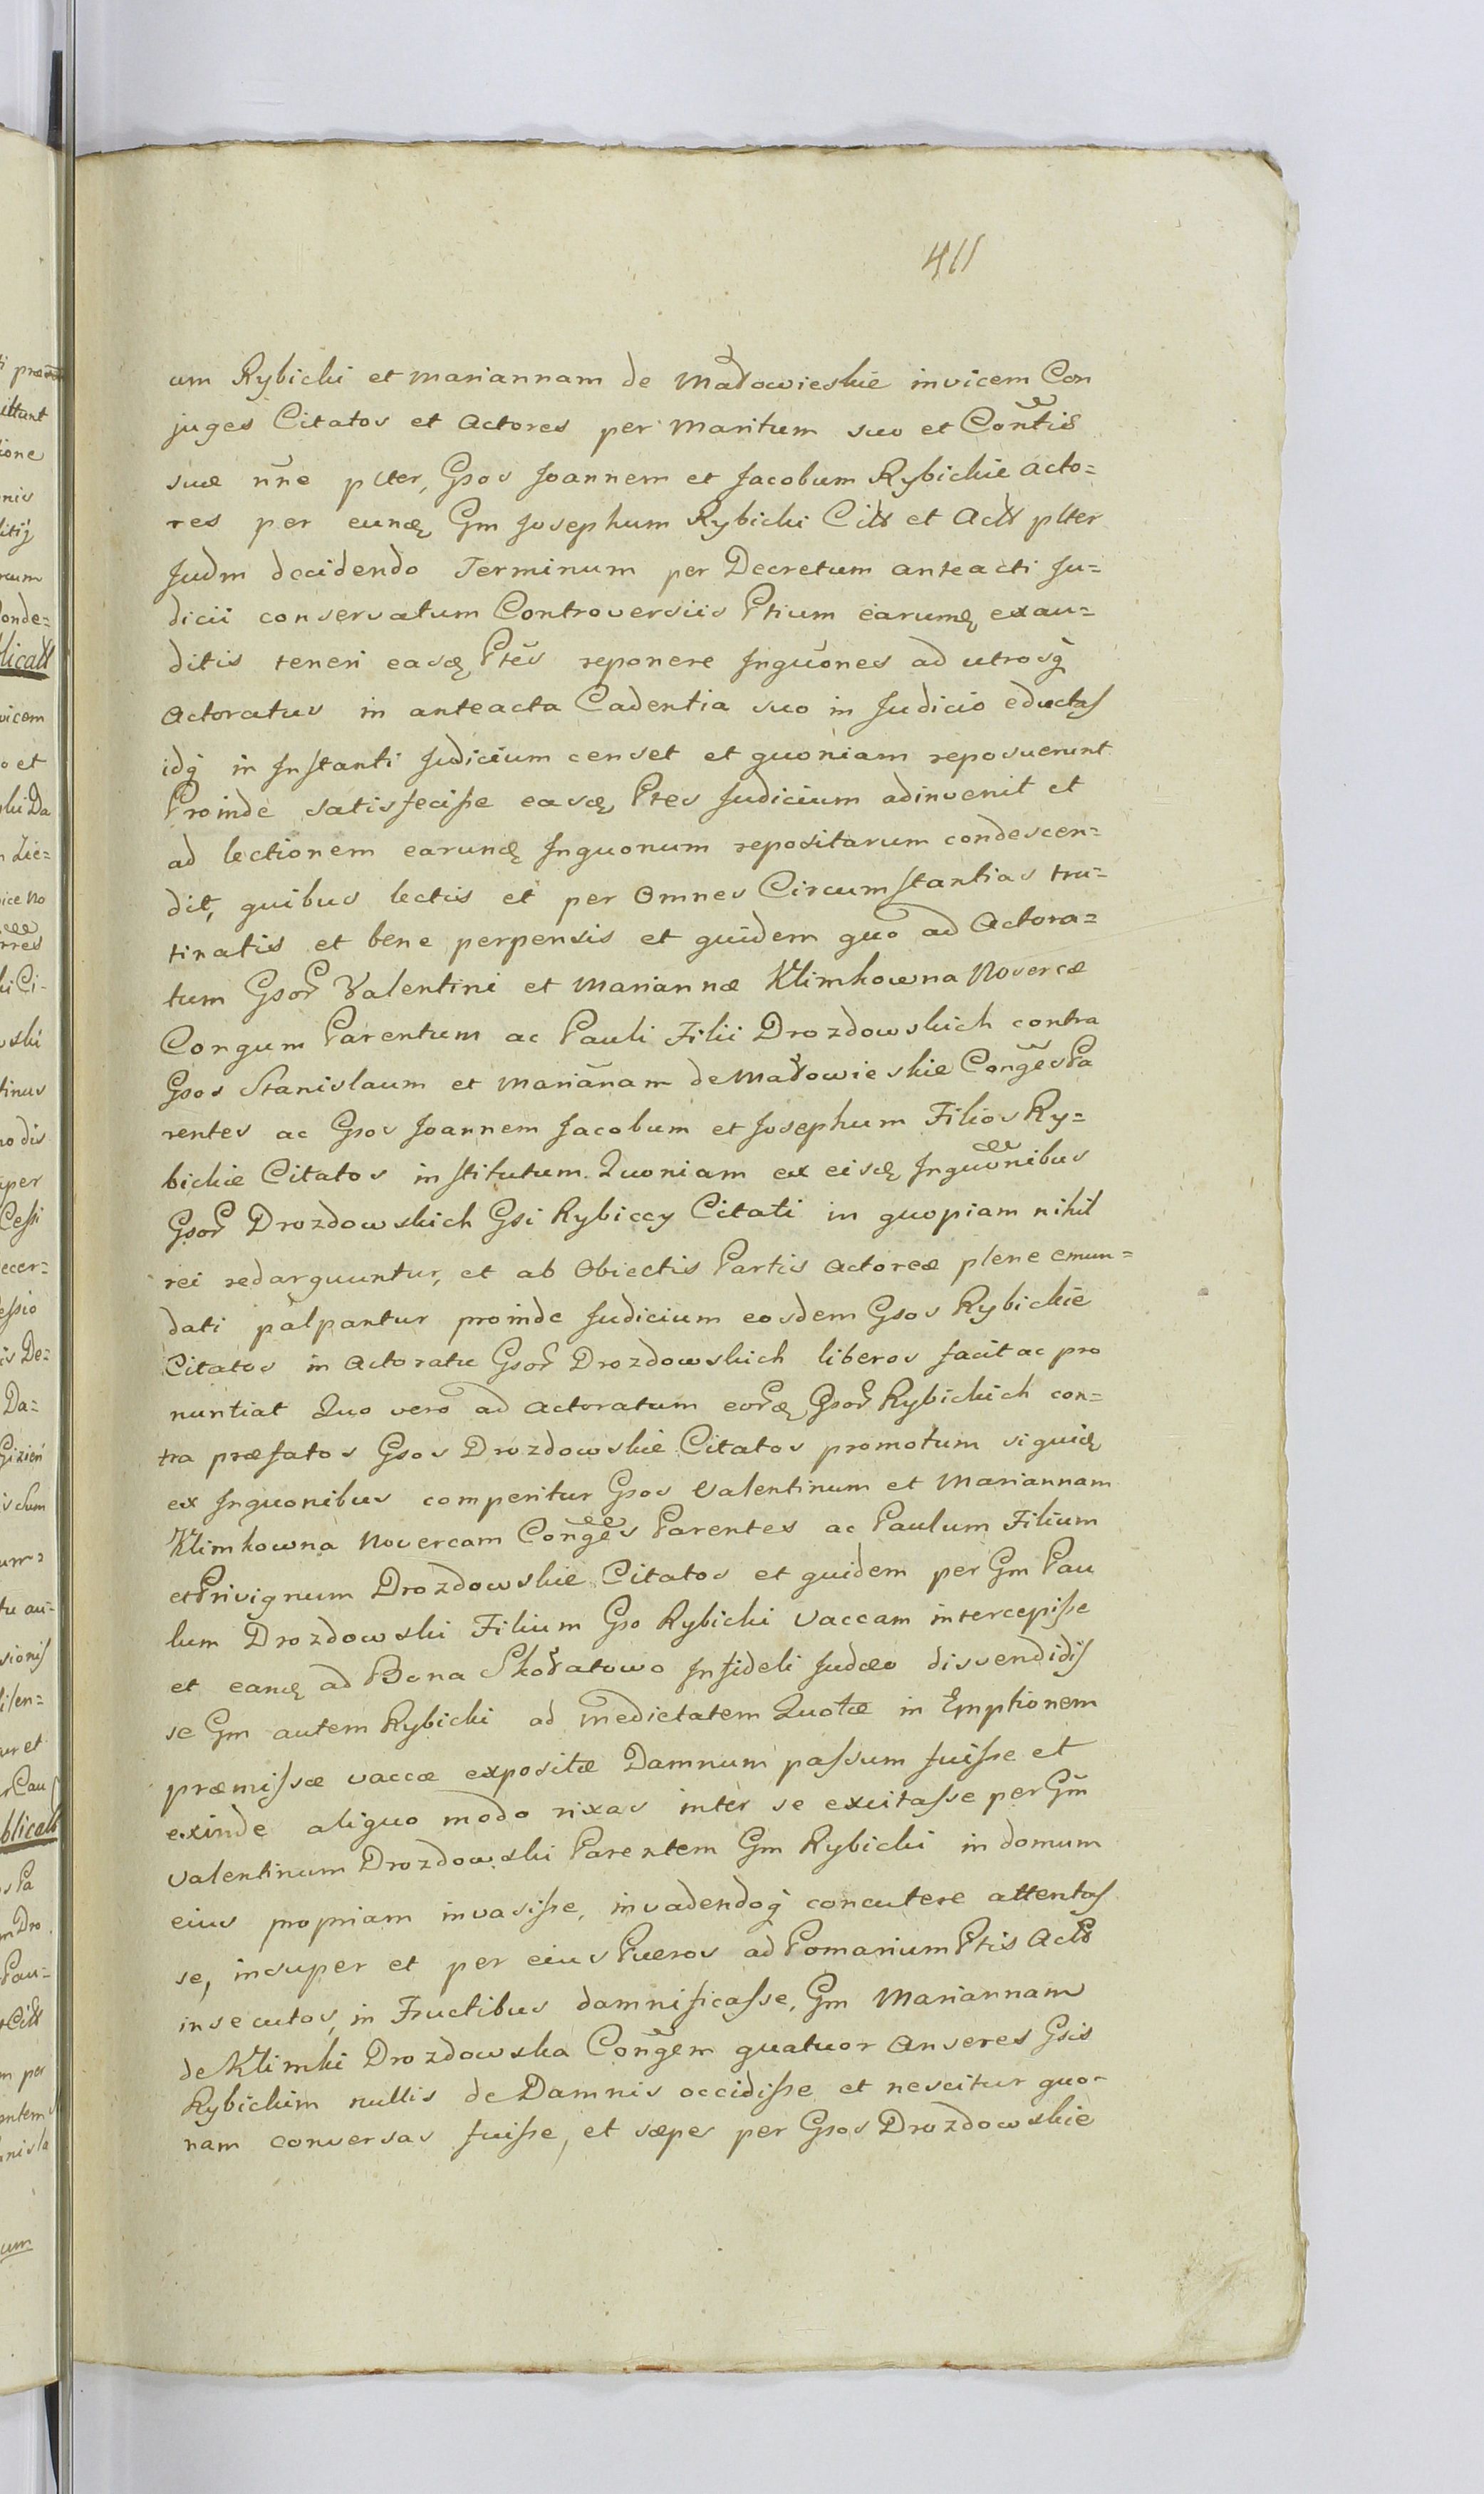 411
um Rybicki et Mariannam de Małowieskie invicem Con
juges Citatos et Actores per Maritum suo et Contis
suæ nne plter, Gsos Joannem et Jacobum Rybickie Acto=
res per eundę Gm Josephum Rybicki Citt et Actt plter
Judm decidendo Terminum per Decretum anteacti Ju=
dicii conservatum Controversiis Ptium earumę exau=
ditis teneri easdę Ptes reponere Inquones ad utrosq
Actoratus in anteacta Cadentia suo in Judicio eductas
idq in Instanti Judicium censet et quoniam reposuerunt
Proinde satisfecisse easdę Ptes Judicium adinvenit et
ad lectionem earundę Inquonum repositarum condescen=
dit, quibus lectis et per Omnes Circumstantias tru=
tinatis et bene perpensis et quidem quo ad Actora=
tum Gsor Valentini et Mariannæ Klimkowna Novercæ
Congum Parentum ac Pauli Filii Drozdowskich contra
Gsos Stanislaum et Mariānam de Małowieskie Conges Pa
rentes ac Gsos Joannem Jacobum et Josephum Filios Ry=
bickie Citatos institutum. Quoniam ex eisdę Inquonibus
Gsor Drozdowskich Gsi Rybiccy Citati in quopiam nihil
rei redarguuntur, et ab Obiectis Partis Actoreæ plene emun=
dati palpantur proinde Judicium eosdem Gsos Rybickie
Citatos in Actoratu Gsor Drozdowskich liberos facit ac pro
nuntiat Quo vero ad Actoratum eorę Gsor Rybickich con=
tra præfatos Gsos Drozdowskie Citatos promotum siquidę
ex Inquonibus comperitur Gsos Valentinum et Mariannam
Klimkowna Novercam Conges Parentes ac Paulum Filium
et Privignum Drozdowskie Citatos et quidem per Gm Pau
lum Drozdowski Filium Gso Rybicki Vaccam intercepisse
et eandę ad Bona Skołatowo Infideli Judæo disvendidis
se Gm autem Rybicki ad medietatem Quotæ in Emptionem
præmissæ vaccæ expositæ Damnum passum fuisse et
exinde aliquo modo rixas inter se excitasse per Gm
Valentinum Drozdowski Parentem Gm Rybicki in domum
eius propriam invasisse, invadendoq concutere attentas
se, insuper et per eius Pueros ad Pomarium Ptis Act
insecutos, in Fructibus damnificasse, Gm Mariannam
de Klimki Drozdowska Congem quatuor Anseres Gsis
Rybickim nullis de Damnis occidisse et nescitur quo-
nam conversas fuisse, et sæpes per Gsos Drozdowskie